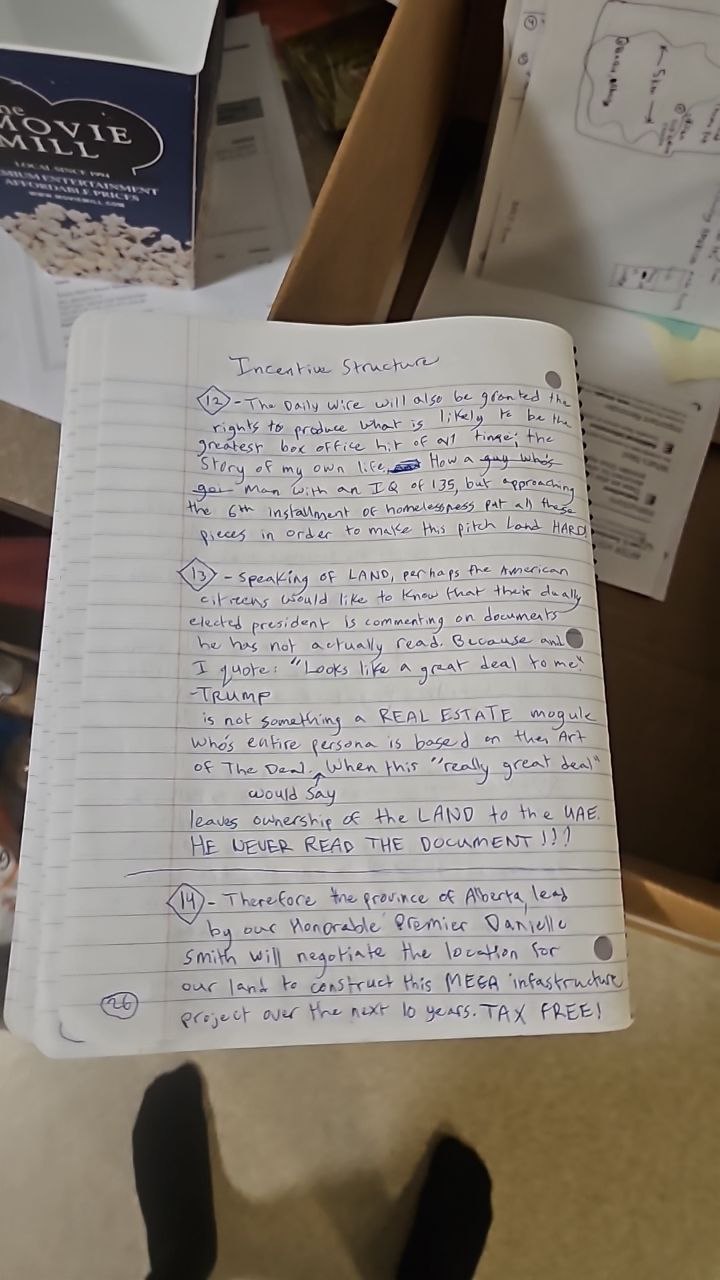 The
MOVIE
MILL
LOCAL SINCE 1994
MIUM ENTERTAINMENT
AFFORDABLE PRICES
WWW.MOVIEMILL.COM
Incentive Structure
12 - The Daily Wire will also be granted the
rights to produce what is likely to be the
greatest box office hit of all time; the
Story of my own life. How a guy who's
got man with an IQ of 135, but approaching
the 6th installment of homelessness put all these
pieces in order to make this pitch Land HARD!
13 - Speaking of LAND, perhaps the American
citizens would like to know that their dually
elected president is commenting on documents
he has not actually read. Because and
I quote: "Looks like a great deal to me"
-TRUMP
is not something a REAL ESTATE mogule
who's entire persona is based on the Art
of The Deal. When this "really great deal"
would say
leaves ownership of the LAND to the UAE.
HE NEVER READ THE DOCUMENT!!!
14 - Therefore the province of Alberta, lead
by our Honorable Premier Danielle
Smith will negotiate the location for
our land to construct this MEGA infastructure
project over the next 10 years. TAX FREE!
26